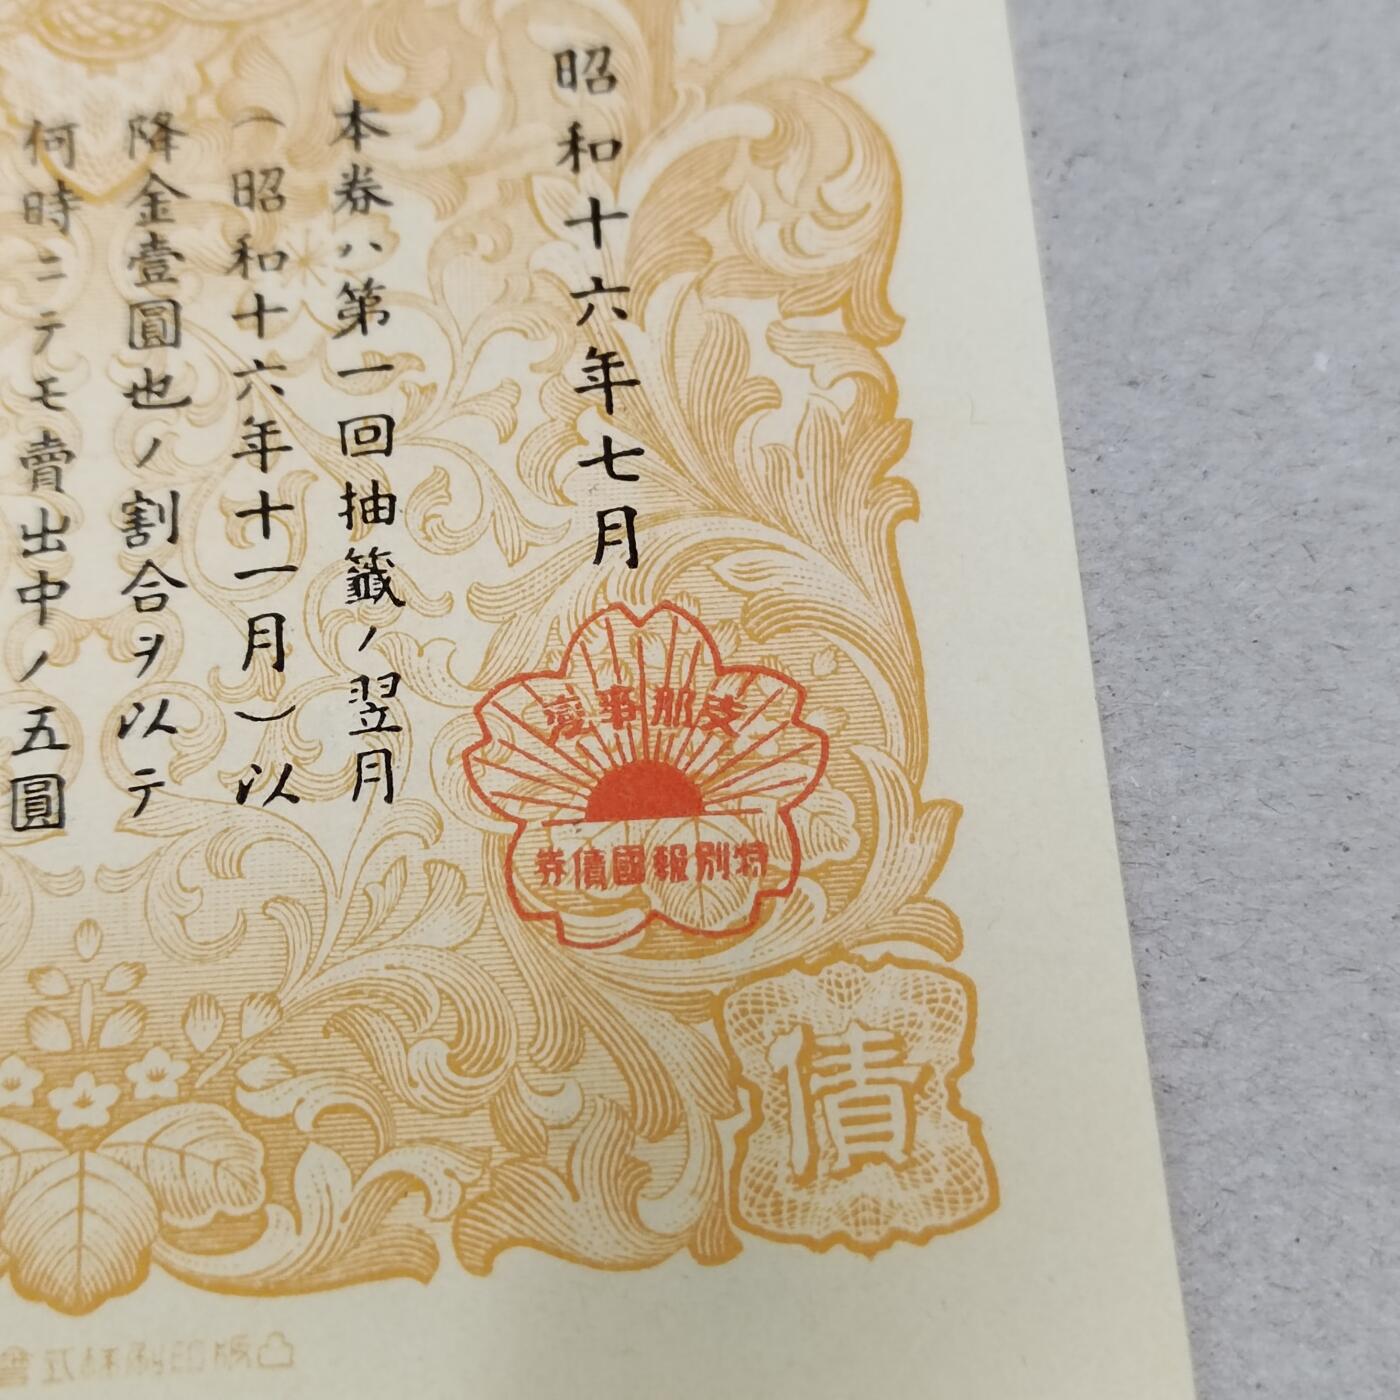 昭和十六年七月
本券ハ第一回抽籤ノ翌月
(昭和十六年十一月)以
降金壹圓也ノ割合ヲ以テ
何時ニテモ賣出中ノ五圓
支那事變
特別報國債券
債
凸版印刷株式會